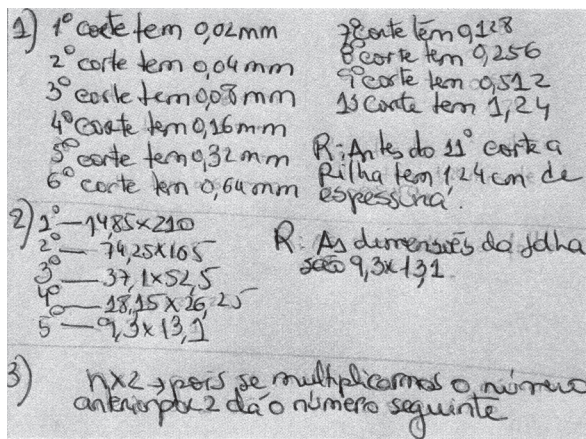 1) 1º corte tem 0,02 mm
2º corte tem 0,04 mm
3º corte tem 0,08 mm
4º corte tem 0,16 mm
5º corte tem 0,32 mm
6º corte tem 0,64 mm
7º corte têm 0,128
8º corte tem 0,256
9º corte tem 0,512
11 corte tem 1,24
R: Antes do 11º corte a
pilha tem 1,24 cm de
espessura.
2) 1º — 14,85 x 210
2º — 74,25 x 105
3º — 37,1 x 52,5
4º — 18,15 x 26,25
5º — 9,3 x 13,1
R: As dimensões da folha
são 9,3 x 13,1
3) n x 2 → pois se multiplicarmos o número
anterior por 2 dá o número seguinte